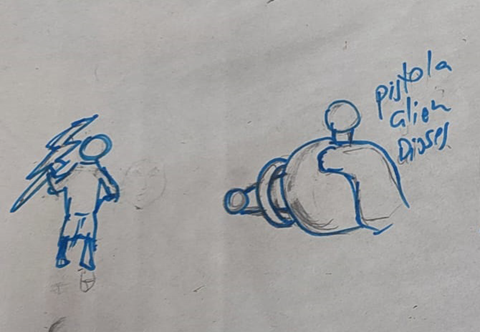 pistola
alien
Dioses